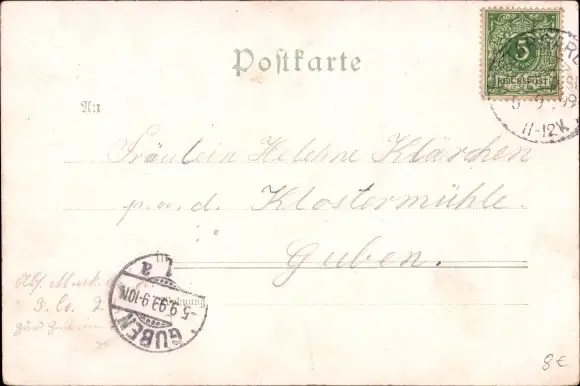 Postkarte
5
REICHSPOST
5 9 99
11-12V.
An
Fräulein Helene Klärchen
p. a. d. Klostermühle.
Guben.
GUBEN
5.9.99.9-10N.
1 a
8€